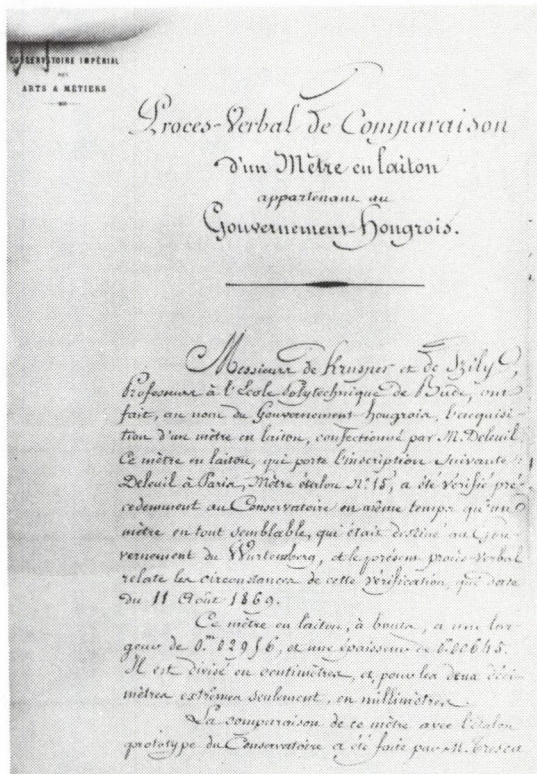 CONSERVATOIRE IMPÉRIAL
DES
ARTS & MÉTIERS
Proces-Verbal de Comparaison
d'un Mètre en laiton
appartenant au
Gouvernement Hongrois.
Messieurs de Krusper et de Szily,
Professeurs à l'Ecole Polytechnique de Bude, ont
fait, au nom du Gouvernement hongrois, l'acquisi-
tion d'un mètre en laiton, confectionné par M. Deleuil.
Ce mètre en laiton, qui porte l'inscription suivante :
Deleuil à Paris, Mètre étalon No. 15, a été vérifié pré-
cedemment au Conservatoire en même temps qu'un
mètre en tout semblable, qui était destiné au Gou-
vernement du Wurtemberg, et le présent procès-verbal
relate les circonstances de cette vérification, qui date
du 11 Août 1869.
Ce mètre en laiton, à bouts, a une lar-
geur de 0.m 02956, et une épaisseur de 0.m 00645.
Il est divisé en centimètres, et, pour les deux déci-
mètres extrêmes seulement, en millimètres.
La comparaison de ce mètre avec l'étalon
prototype du Conservatoire a été faite par M. Tresca